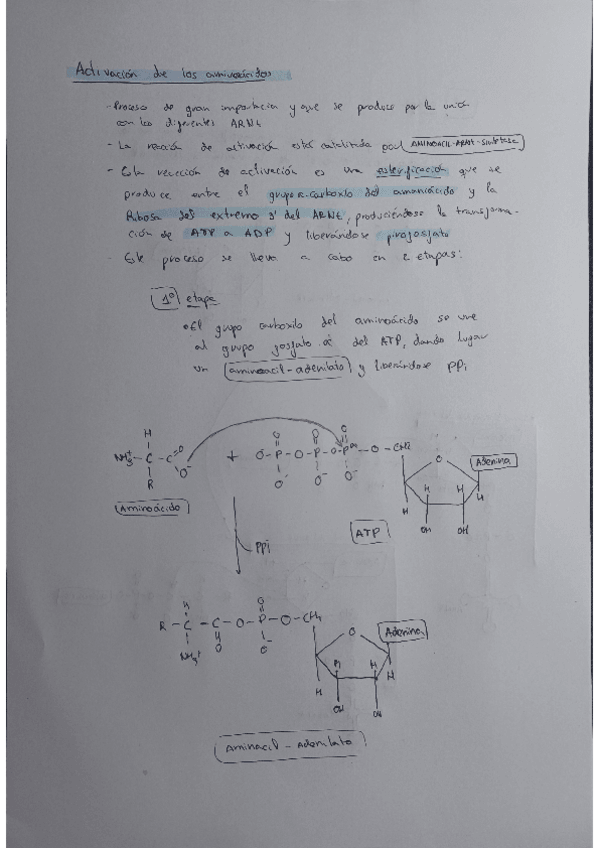 Activación de los aminoácidos
- Proceso de gran importancia y que se produce por la unión
con los diferentes ARNt
- La reacción de activación está catalizada por AMINOACIL-ARNt-Sintetasa
- Esta reacción de activación es una esterificación que se
produce entre el grupo α-carboxilo del amonoácido y la
Ribosa del extremo 3' del ARNt, produciéndose la transforma-
ción de ATP a ADP y liberándose pirofosfato
- Este proceso se lleva a cabo en 2 etapas:
1º etapa
El grupo carboxilo del aminoácido se une
al grupo fosfato α del ATP, dando lugar
un aminoacil-adenilato y liberándose PPi
H
NH3+ - C - C = O
O-
R
Aminoácido
+
O- - P - O - P - O - Pα - O - CH2
O O O
O- O- O-
O
Adenina
H H H H
OH OH
ATP
PPi
H O
R - C - C - O - P - O - CH2
NH3+ O O-
O
Adenina
H H H H
OH OH
Aminacil - Adenilato